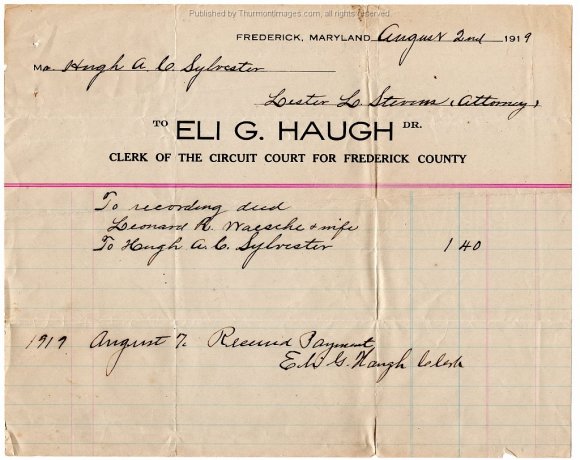 Published by Thurmontimages.com, all rights reserved.
FREDERICK, MARYLAND August 2nd 1919
Mr. Hugh A. C. Sylvester
Lester L. Stevens (Attorney)
TO ELI G. HAUGH DR.
CLERK OF THE CIRCUIT COURT FOR FREDERICK COUNTY
To recording deed
Leonard R. Waesche & wife
To Hugh A. C. Sylvester 1 40
1919 August 7. Received Payment
Eli G. Haugh Clerk